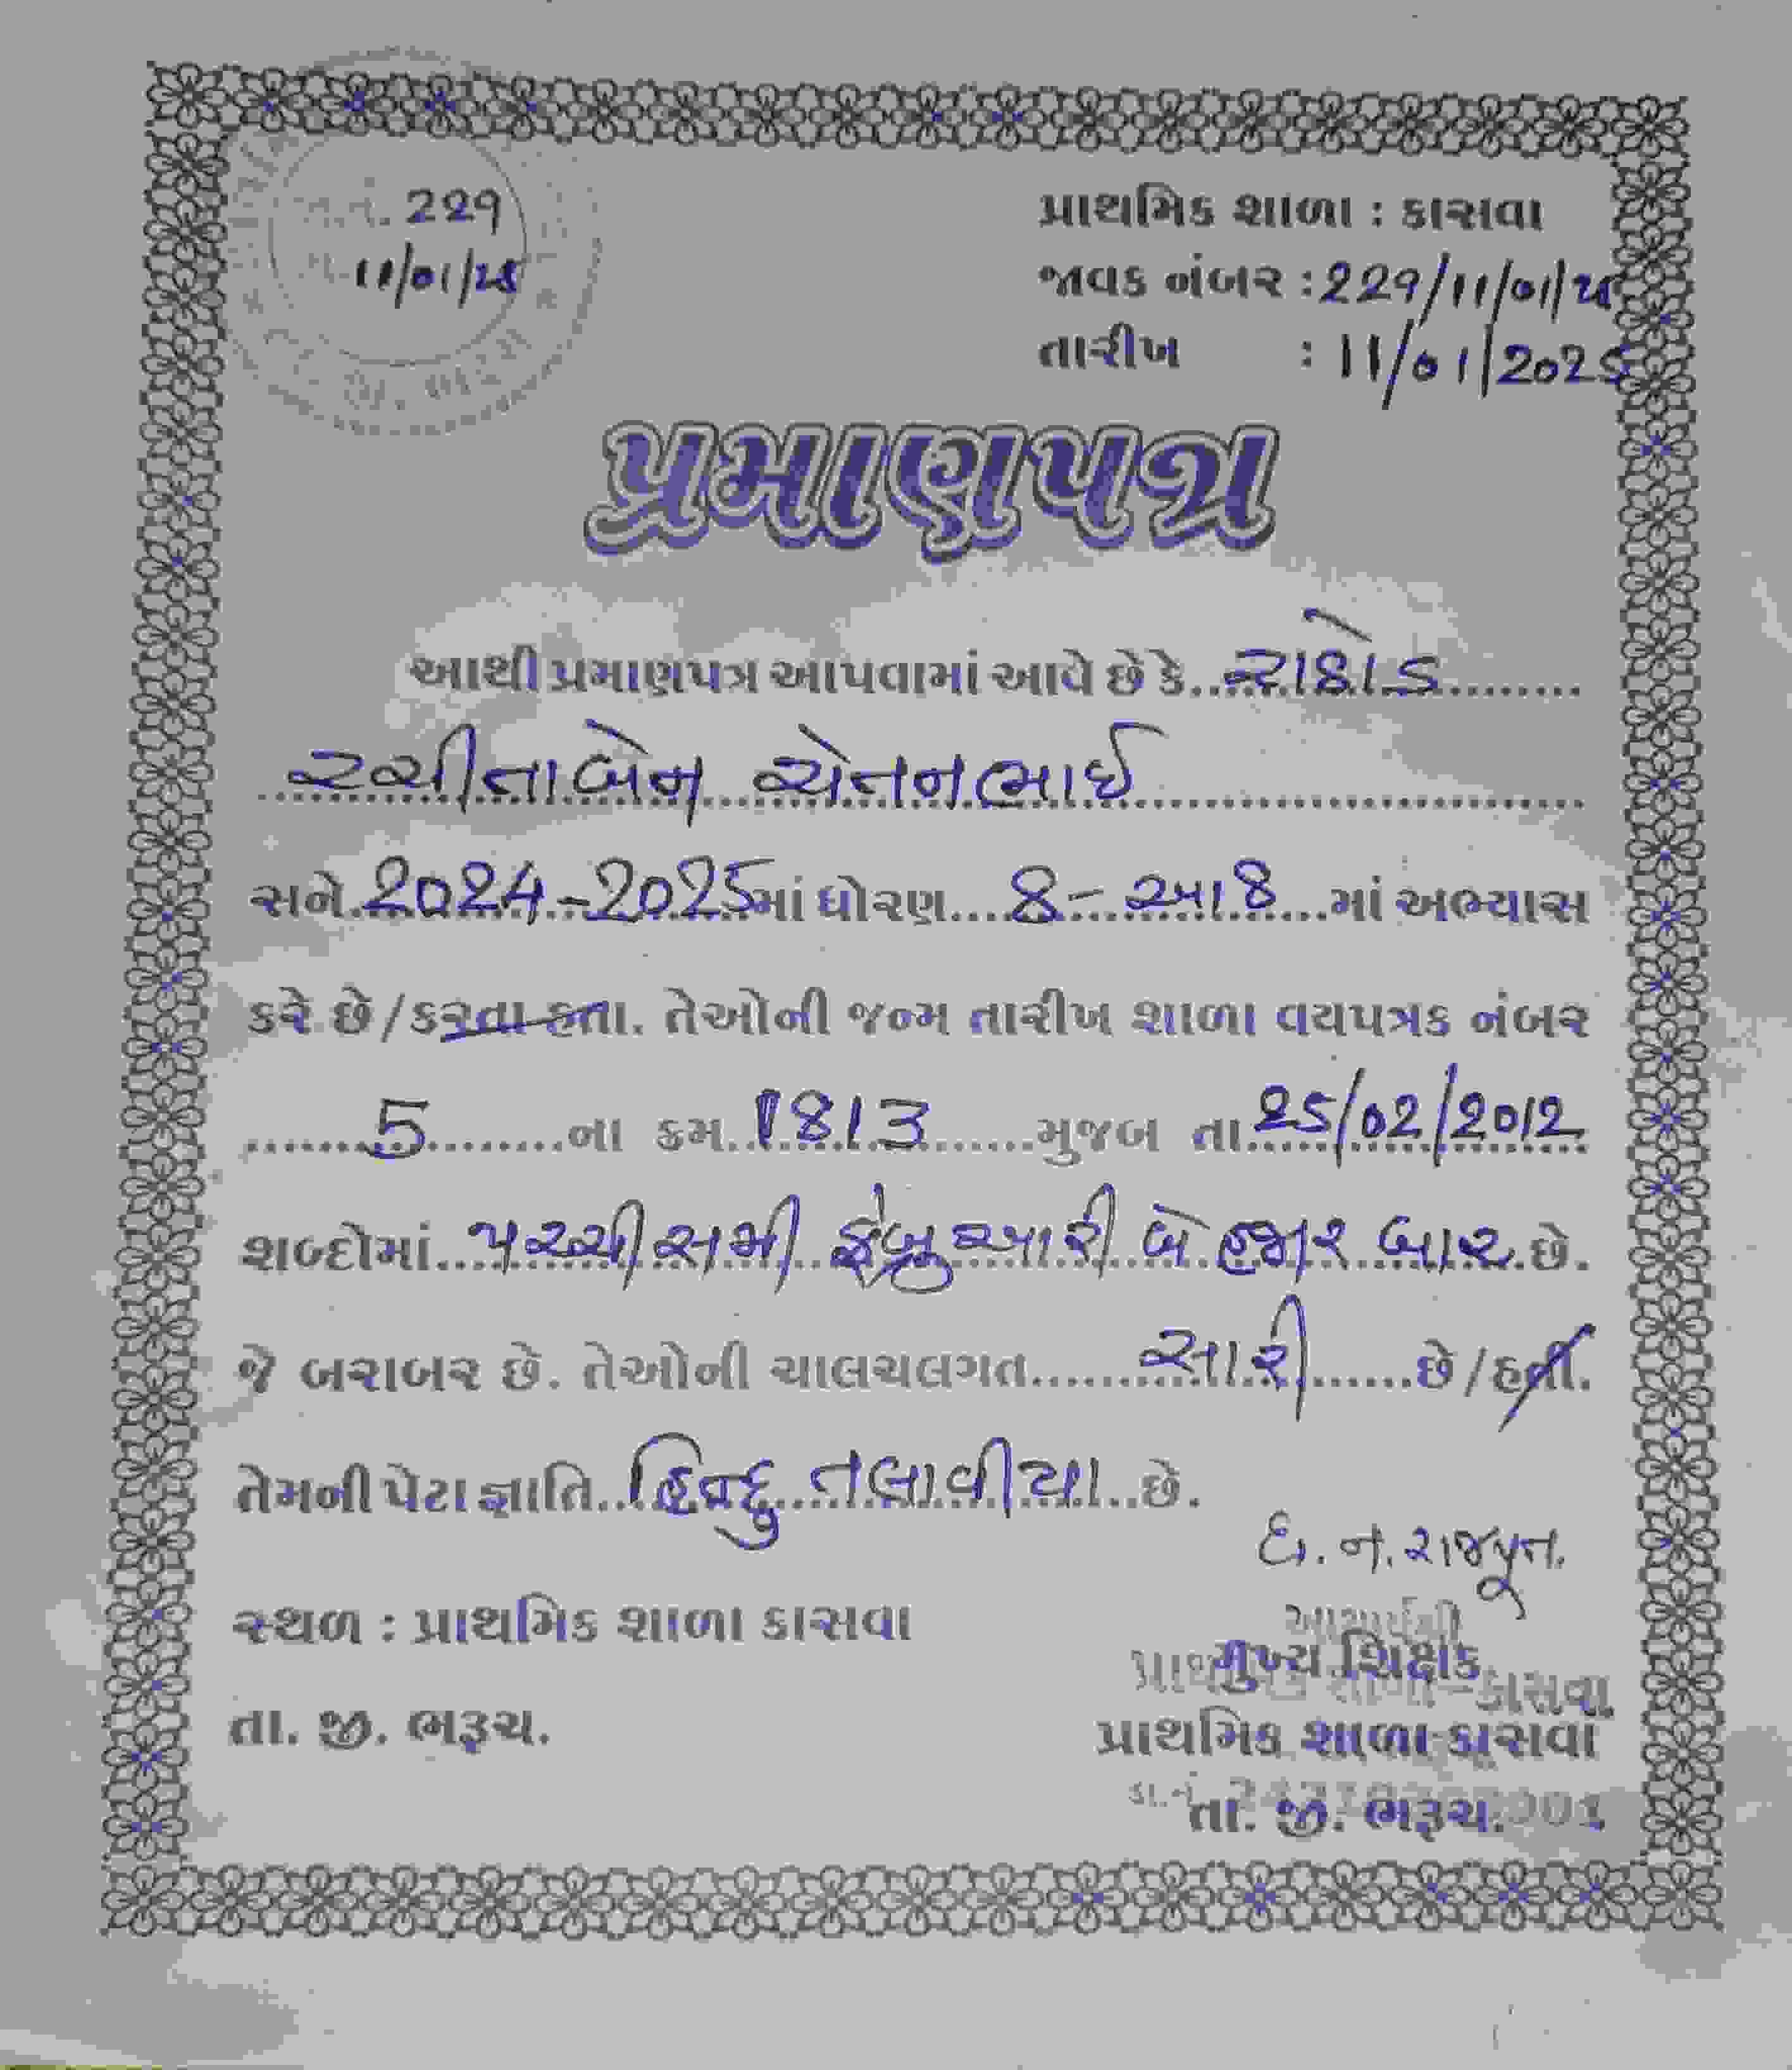 229
11/01/25
પ્રાથમિક શાળા : કાસવા
જાવક નંબર : 229/11/01/25
તારીખ : 11/01/2025
પ્રમાણપત્ર
આથી પ્રમાણપત્ર આપવામાં આવે છે કે રાઠોડ
રચીતાબેન ચેતનભાઈ
સને 2024-2025માં ધોરણ 8- આઠ માં અભ્યાસ
કરે છે/કરતા હતા. તેઓની જન્મ તારીખ શાળા વયપત્રક નંબર
5 ના ક્રમ 1813 મુજબ તા 25/02/2012
શબ્દોમાં પચ્ચીસમી ફેબ્રુઆરી બે હજાર બાર છે.
જે બરાબર છે. તેઓની ચાલચલગત સારી છે/હતી.
તેમની પેટા જ્ઞાતિ હિન્દુ તલાવીયા છે.
ધ. ન. રાજપૂત.
સ્થળ : પ્રાથમિક શાળા કાસવા
આચાર્યશ્રી
મુખ્ય શિક્ષક
કાસવા
તા. જી. ભરૂચ.
પ્રાથમિક શાળા કાસવા
તા. જી. ભરૂચ.